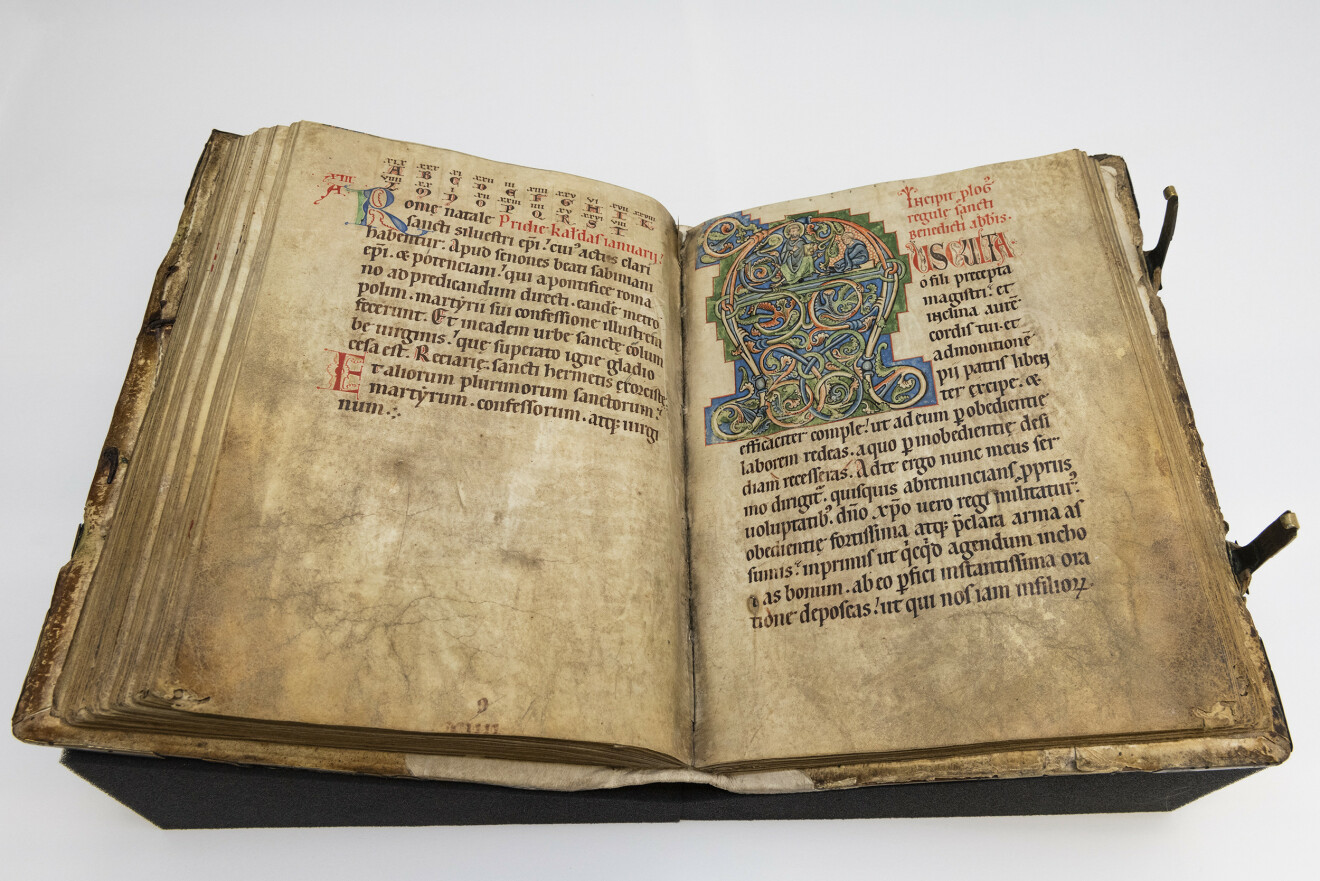 .xix. .xxx. .xi. .xxii. .iii. .xiiii. .xxv. .vi. .xvii. .xxviii.
A B C D E F G H I K
.viiii. .xx. .i. .xii. .xxiii. .iiii. .xv. .xxvi. .viii.
L M N O P Q R S T
.xiii.
A
Romę natale Pridie kaƚdas ianuarij.
sancti siluestri ep̄i. cui᷒ actus clari
habentur. Apud senones beati sabiniani
ep̄i. & potenciani. qui a pontifice roma
no ad predicandum directi. eandē metro
polim. martyrii sui confessione illustrem
fecerunt. Et in eadem urbe sanctę colum
be uirginis. quę superato igne gladio
cesa est. Reciarię. sancti hermetis exorcistę
Et aliorum plurimorum sanctorum.
martyrum. confessorum. atq; uirgi
num
9
XIIII
Incipit ꝓlog᷒
regule sancti
Benedicti abbis.
AUSCULTA
o fili precepta
magistri. et
inclina aurē
cordis tui. et
admonitionē
pii patris liben
ter excipe. &
efficaciter comple. ut ad eum ꝑ obedientię
laborem redeas. a quo ꝑ inobedientię desi
diam recesseras. Ad te ergo nunc meus ser
mo dirigit᷒. quisquis abrenuncians ꝓpriis
uoluptatib᷒. dn̄o xp̄o uero regi militatur᷒.
obedientię fortissima atq; p̄clara arma as
sumis. inprimis ut q̄cq̄d agendum incho
as bonum. ab eo ꝑfici instantissima ora
tione deposcas. ut qui nos iam in filioꝝ